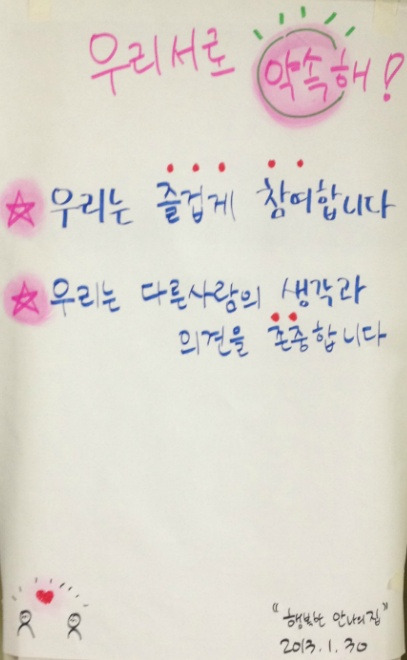 우리서로 약속해!
☆ 우리는 즐겁게 참여합니다
☆ 우리는 다른사람의 생각과
의견을 존중합니다
"행복한 안나의집"
2013.1.30